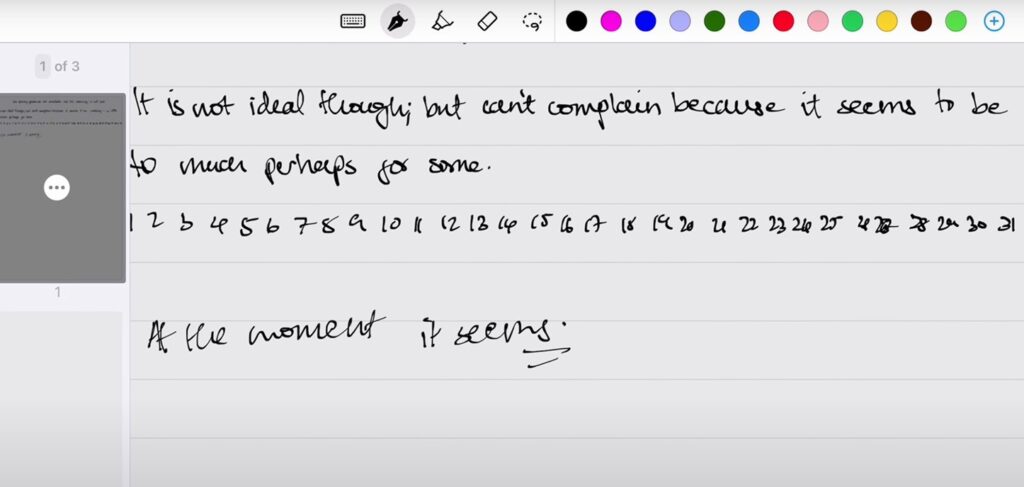 1 of 3
It is not ideal though; but can't complain because it seems to be
to much perhaps for some.
1 2 3 4 5 6 7 8 9 10 11 12 13 14 15 16 17 18 19 20 21 22 23 24 25 28 29 30 31
At the moment it seems.
1